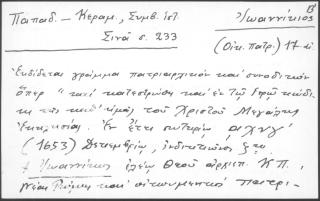 Παπαδ. – Κεραμ., Συμβ. Ἱστ.
Σινᾶ σ. 233
Ἰωαννίκιος Β'
(Οἰκ. πατρ.) 17 αἰ
Ἐκδίδεται γράμμα πατριαρχικὸν καὶ συνοδικὸν
ὅπερ "καὶ κατεστρώθη καὶ ἐν τῷ ἱερῷ κώδι-
κι τῆς καθ' ἡμᾶς τοῦ Χριστοῦ Μεγάλης
Ἐκκλησίας. Ἐν ἔτει σωτηρίῳ αχνγ'
(1653) Δεκεμβρίῳ, ἰνδικτιῶνος ζης.
† Ἰωαννίκιος ἐλέῳ Θεοῦ ἀρχιεπ. Κ.Π.,
Νέας Ῥώμης καὶ οἰκουμενικὸς πατρι-